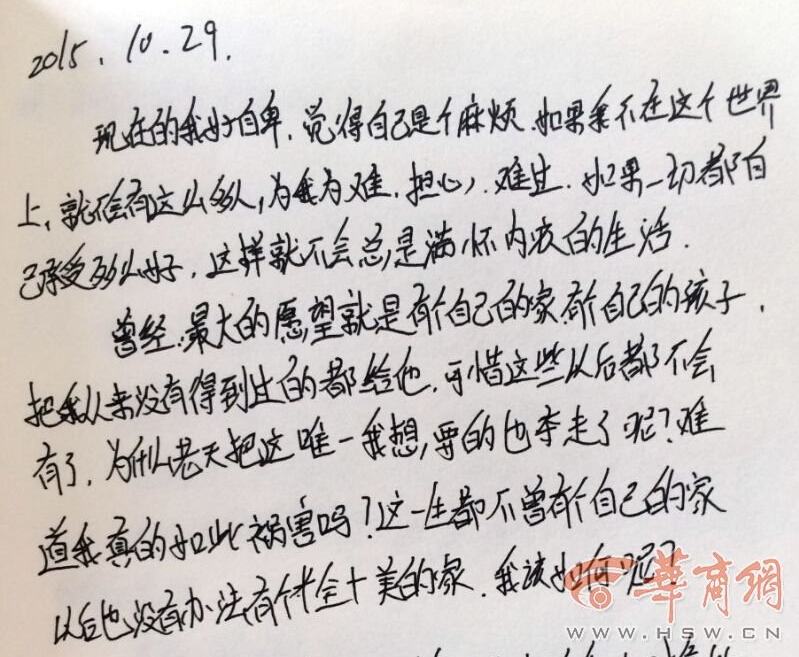 2015.10.29.
现在的我好自卑.觉得自己是个麻烦.如果我不在这个世界
上,就不会有这么多人,为我为难.担心,难过.如果一切都自
己承受多么好.这样就不会总是满怀内疚的生活.
曾经.最大的愿望就是有个自己的家.有个自己的孩子.
把我从来没有得到过的都给他.可惜这些以后都不会
有了.为什么老天把这唯一我想,要的也拿走了呢?难
道我真的如此祸害吗?这一生都不曾有个自己的家
以后也没有办法有个十全十美的家.我该如何呢?
華商網
WWW.HSW.CN